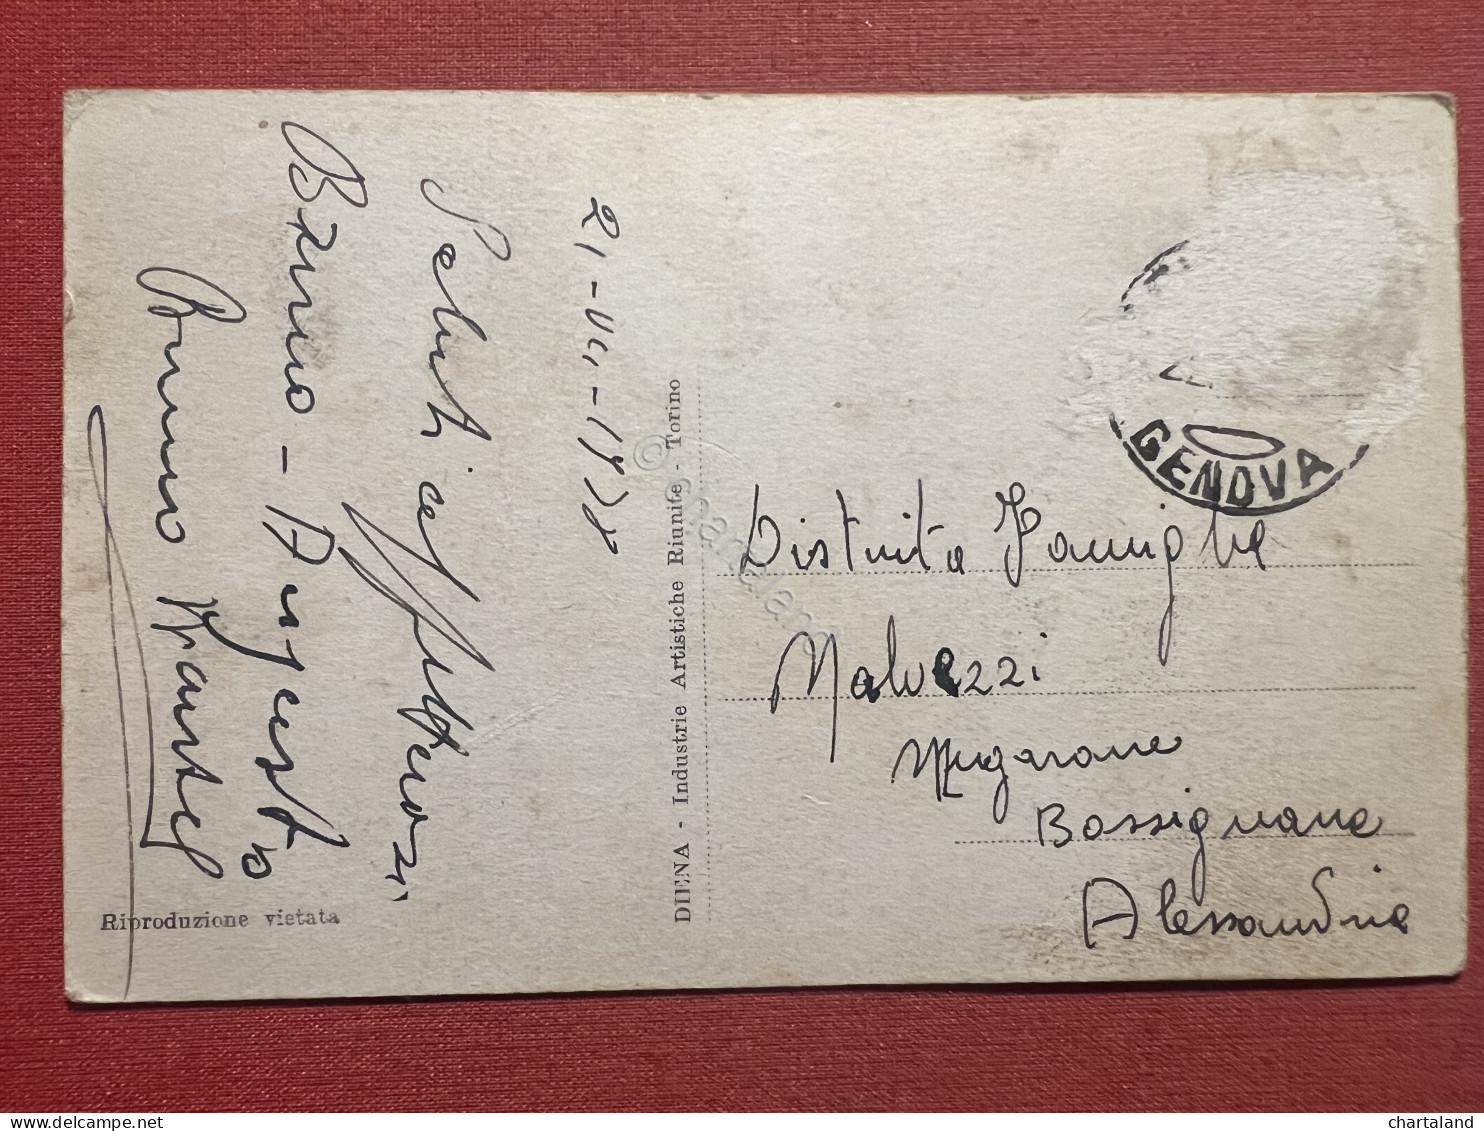 21-VII-1938
Saluti affettuosi
Bruno - Augusto
Bruno
Riproduzione vietata
DIENA - Industrie Artistiche Riunite - Torino
GENOVA
Distinta Famiglia
Malvezzi
Mugarone
Bassignana
Alessandria
© chartaland
chartaland
delcampe.net